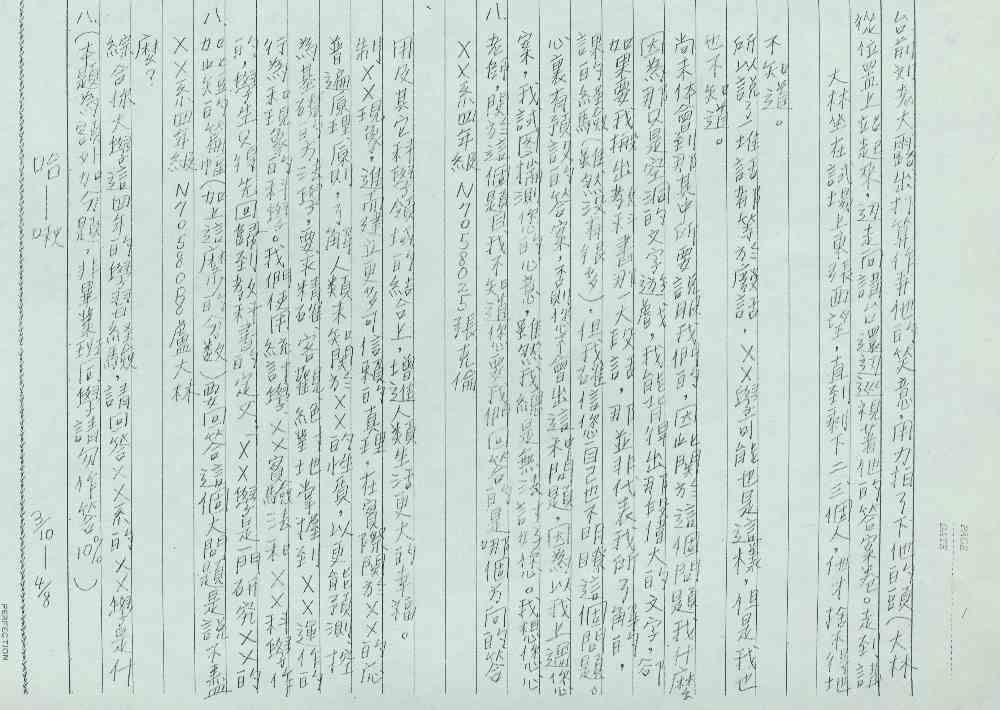 哈——啾
3/10—4/8
八.(本題為額外加分題,非畢業班同學請勿作答 10%)
綜合你大學這四年的學習經驗,請回答XX系的XX學是什
麼?
XX系四年級 N7058008 盧大林
八. 如此短的篇幅(如上這麼少的分數)要回答這個大問題是說不盡
的,學生只得先回歸到教科書的定義「XX學是一門研究XX的
行為和現象的科學。我們使用統計學、XX實驗法和XX科學作
為基礎的方法學,要求精確、客觀絕對地掌握到XX運作的
普遍原理原則,了解人類未知關於XX的性質,以更能預測、控
制XX現象,進而建立更多可信賴的真理,在實際關於XX的應
用及其它科學領域的結合上,增進人類生活更大的幸福。
XX系四年級 N7058025 張充倫
八. 老師,關於這個題目我不知道您要我們回答的是哪個方向的答
案,我試圖揣測您的心意,雖然我總是無法 您。我想您心
心裏有預設的答案,否則您不會出這 問題,因為以我上過您
課的經驗(雖然沒有很多),但我確信您自己也不明瞭這個問題。
如果要我搬出教科書那一大段話,那並非代表我所了解的,
因為那只是空洞的文字遊戲,我能背得出那堆偉大的文字,卻
尚未体會到那其中所要說服我們的,因此關於這個問題我什麼
也不知道。
所以說了一堆話都等於廢話,XX學可能也是這樣,但是我也
不知道。
大林坐在試場上東張西望,一直到剩下二三個人,他才捨不得地
從位置上站起來,邊走向講台還邊巡視著他的答案卷。走到講
台前對老大露出打算 他的笑意,用力拍了下他的頭(大林
PAGE 1
DATE
PERFECTION